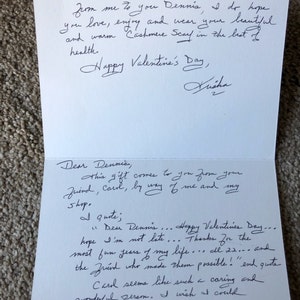 From me to you Dennis I do hope
you love, enjoy and wear your beautiful
and warm Cashmere Scarf in the best of
health.
Happy Valentine's Day,
Trisha
Dear Dennis,
This gift comes to you from your
friend, Carol, by way of me and my
shop.
I quote;
" Dear Dennis... Happy Valentines Day...
hope I'm not late... Thanks for the
most fun years of my life... all 22... and
the friend who made them possible!" end quote.
Carol seems like such a caring and
wonderful person. I wish I could